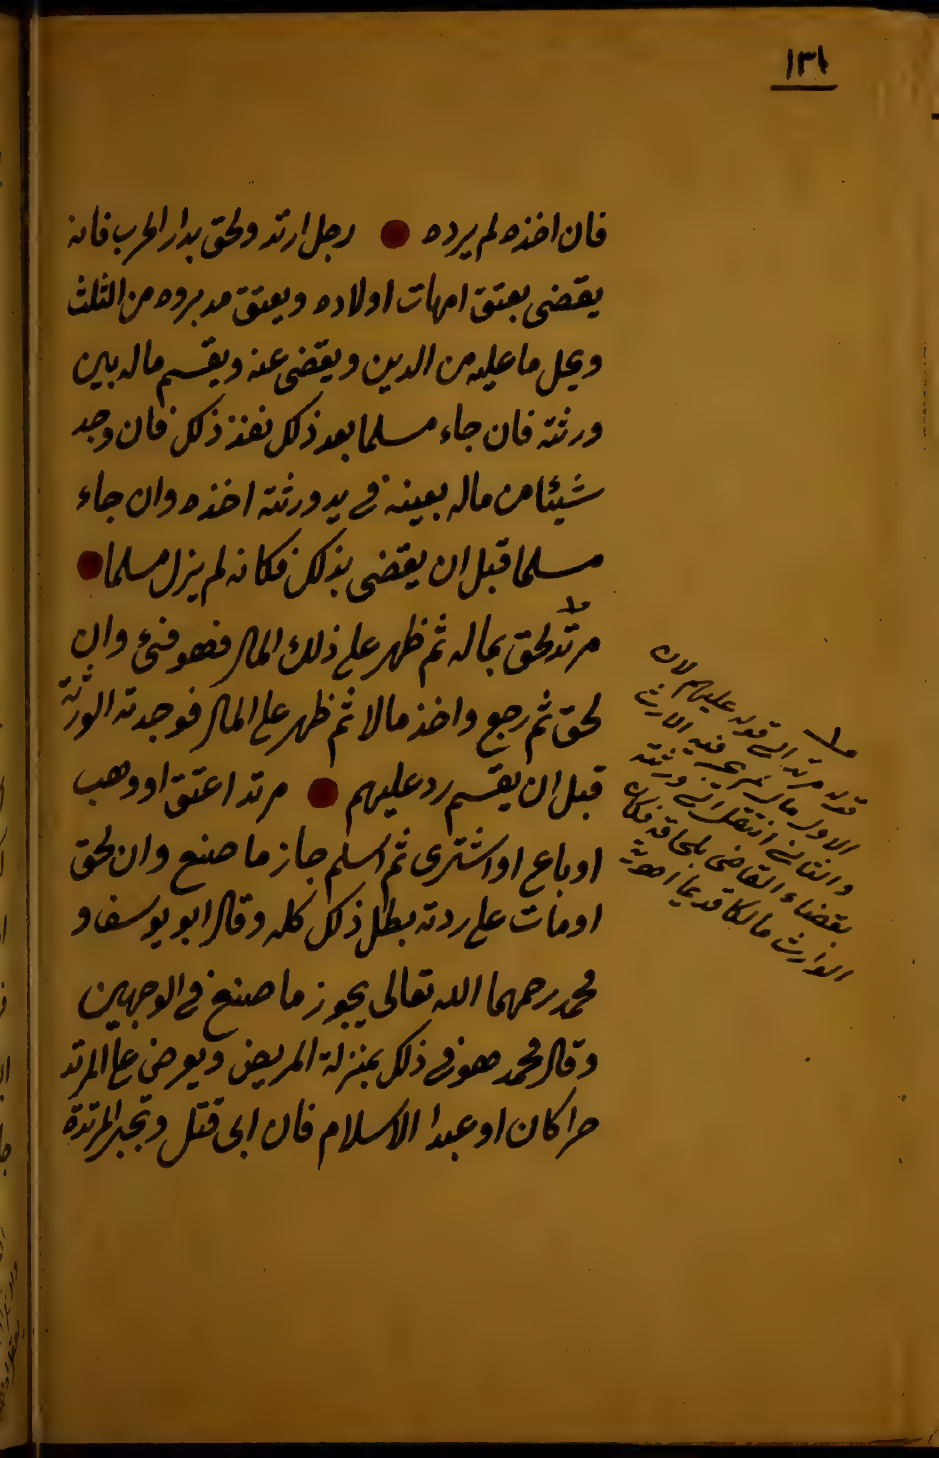 ١٣١
فان اخذه لم يرده رجل ارتد ولحق بدار الحرب فانه
يقضى بعتق امهات اولاده ويعتق مدبروه من الثلث
ويحل ما عليه من الدين ويقضى عنه ويقسم ماله بين
ورثته فان جاء مسلما بعد ذلك نفذ ذلك فان وجد
شيئا من ماله بعينه في يد ورثته اخذه وان جاء
مسلما قبل ان يقضى بذلك فكانه لم يزل مسلما
مرتد لحق بماله ثم ظهر على ذلك المال فهو فئ وان
لحق ثم رجع واخذ مالا ثم ظهر على المال فوجدته الورثة
قبل ان يقسم رد عليهم مرتد اعتق او وهب
او باع او اشترى ثم اسلم جاز ما صنع وان لحق
او مات على ردته بطل ذلك كله وقال ابو يوسف و
محمد رحمهما الله تعالى يجوز ما صنع في الوجهين
وقال محمد هو في ذلك بمنزلة المريض ويعرض على المرتد
حرا كان او عبدا الاسلام فان ابى قتل وتجبر المرتدة
قوله مرتد الى قوله عليهم لان
الاول مال لم يجر فيه الارث
والثاني انتقل الى ورثته
بقضاء القاضى بلحاقه فكان
الوارث مالكا قديما